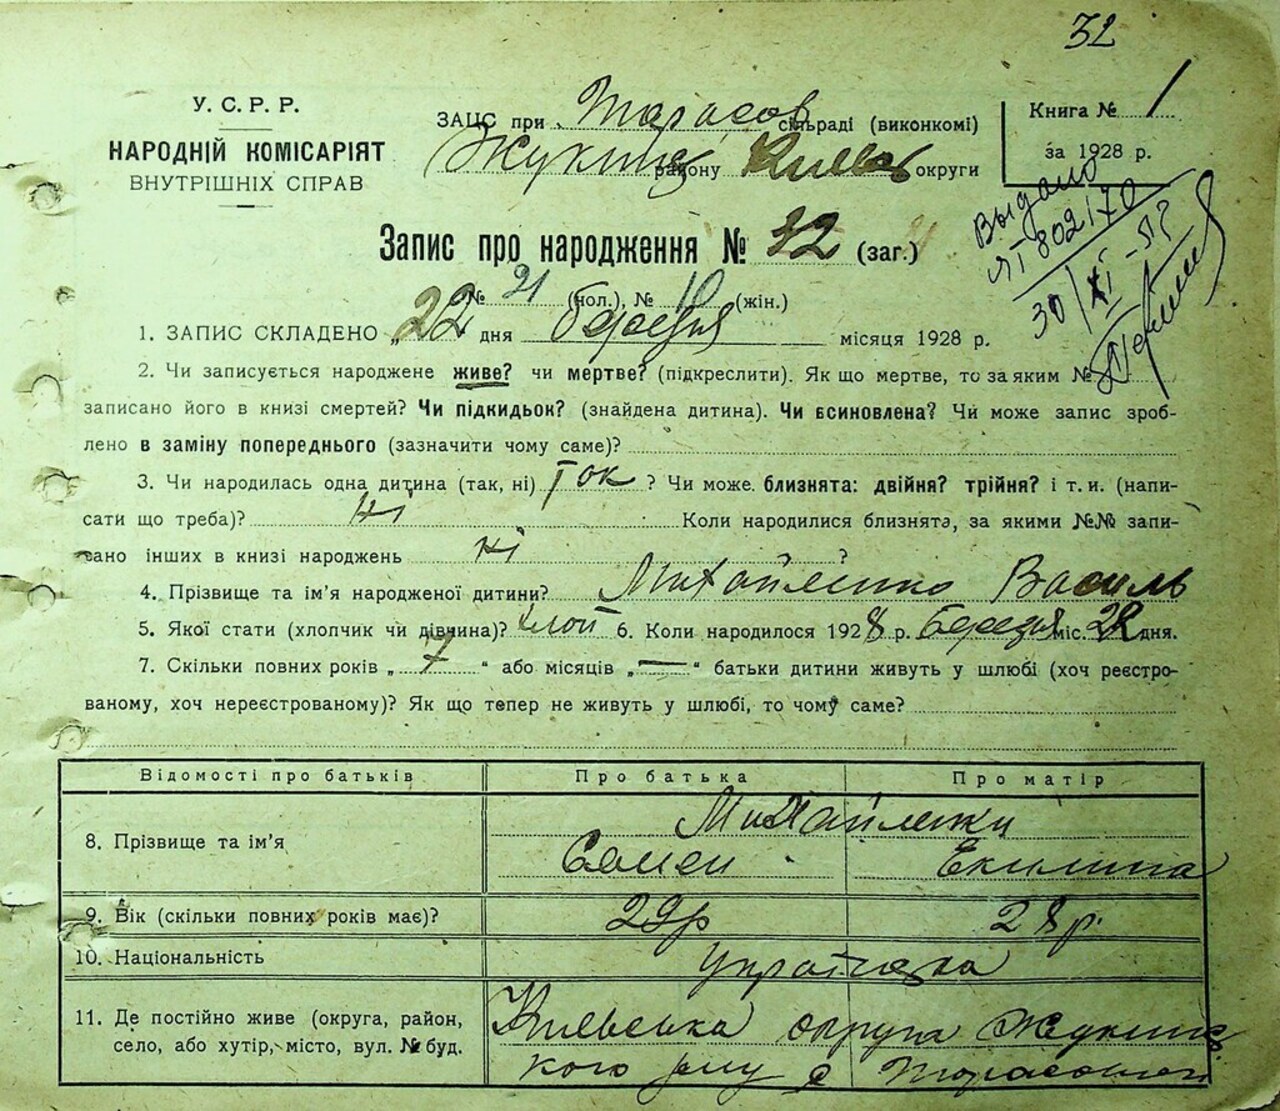 32
У. С. Р. Р.
НАРОДНІЙ КОМІСАРІЯТ
ВНУТРІШНІХ СПРАВ
ЗАЦС при Тарасов сільраді (виконкомі)
Жукинц району Київс округи
Книга № 1
за 1928 р.
Выдано
ЯТ 802170
30/XI-
Запис про народження № 32 (заг.)
№ 21 (чол.), № 10 (жін.)
1. ЗАПИС СКЛАДЕНО „22 дня березня місяця 1928 р.
2. Чи записується народжене живе? чи мертве? (підкреслити). Як що мертве, то за яким №
записано його в книзі смертей? Чи підкидьок? (знайдена дитина). Чи всиновлена? Чи може запис зроб-
лено в заміну попереднього (зазначити чому саме)?
3. Чи народилась одна дитина (так, ні) так ? Чи може близнята: двійня? трійня? і т. и. (напи-
сати що треба)? ні Коли народилися близнята, за якими №№ запи-
вано інших в книзі народжень ні ?
4. Прізвище та ім'я народженої дитини? Михайленко Василь
5. Якої стати (хлопчик чи дівчина)? хлоп 6. Коли народилося 1928 р. Березня міс. дня.
7. Скільки повних років „ 7 “ або місяців „ — “ батьки дитини живуть у шлюбі (хоч реєстро-
ваному, хоч нереєстрованому)? Як що тепер не живуть у шлюбі, то чому саме?
Відомості про батьків Про батька Про матір
Михайленки
8. Прізвище та ім'я Семен Екилина
9. Вік (скільки повних років має)? 29р 28 р.
10. Національність українська
11. Де постійно живе (округа, район, Київська округа Жукинс
село, або хутір, місто, вул. № буд. кого р-ну с